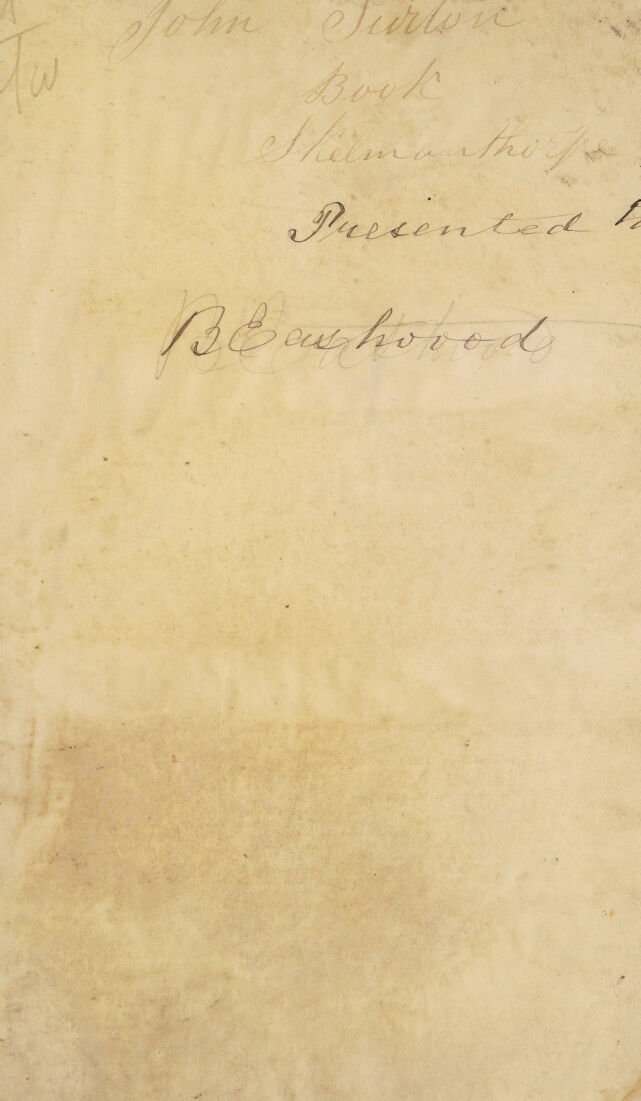 John Turton
Book
Skelmanthorpe
Presented
B Eastwood